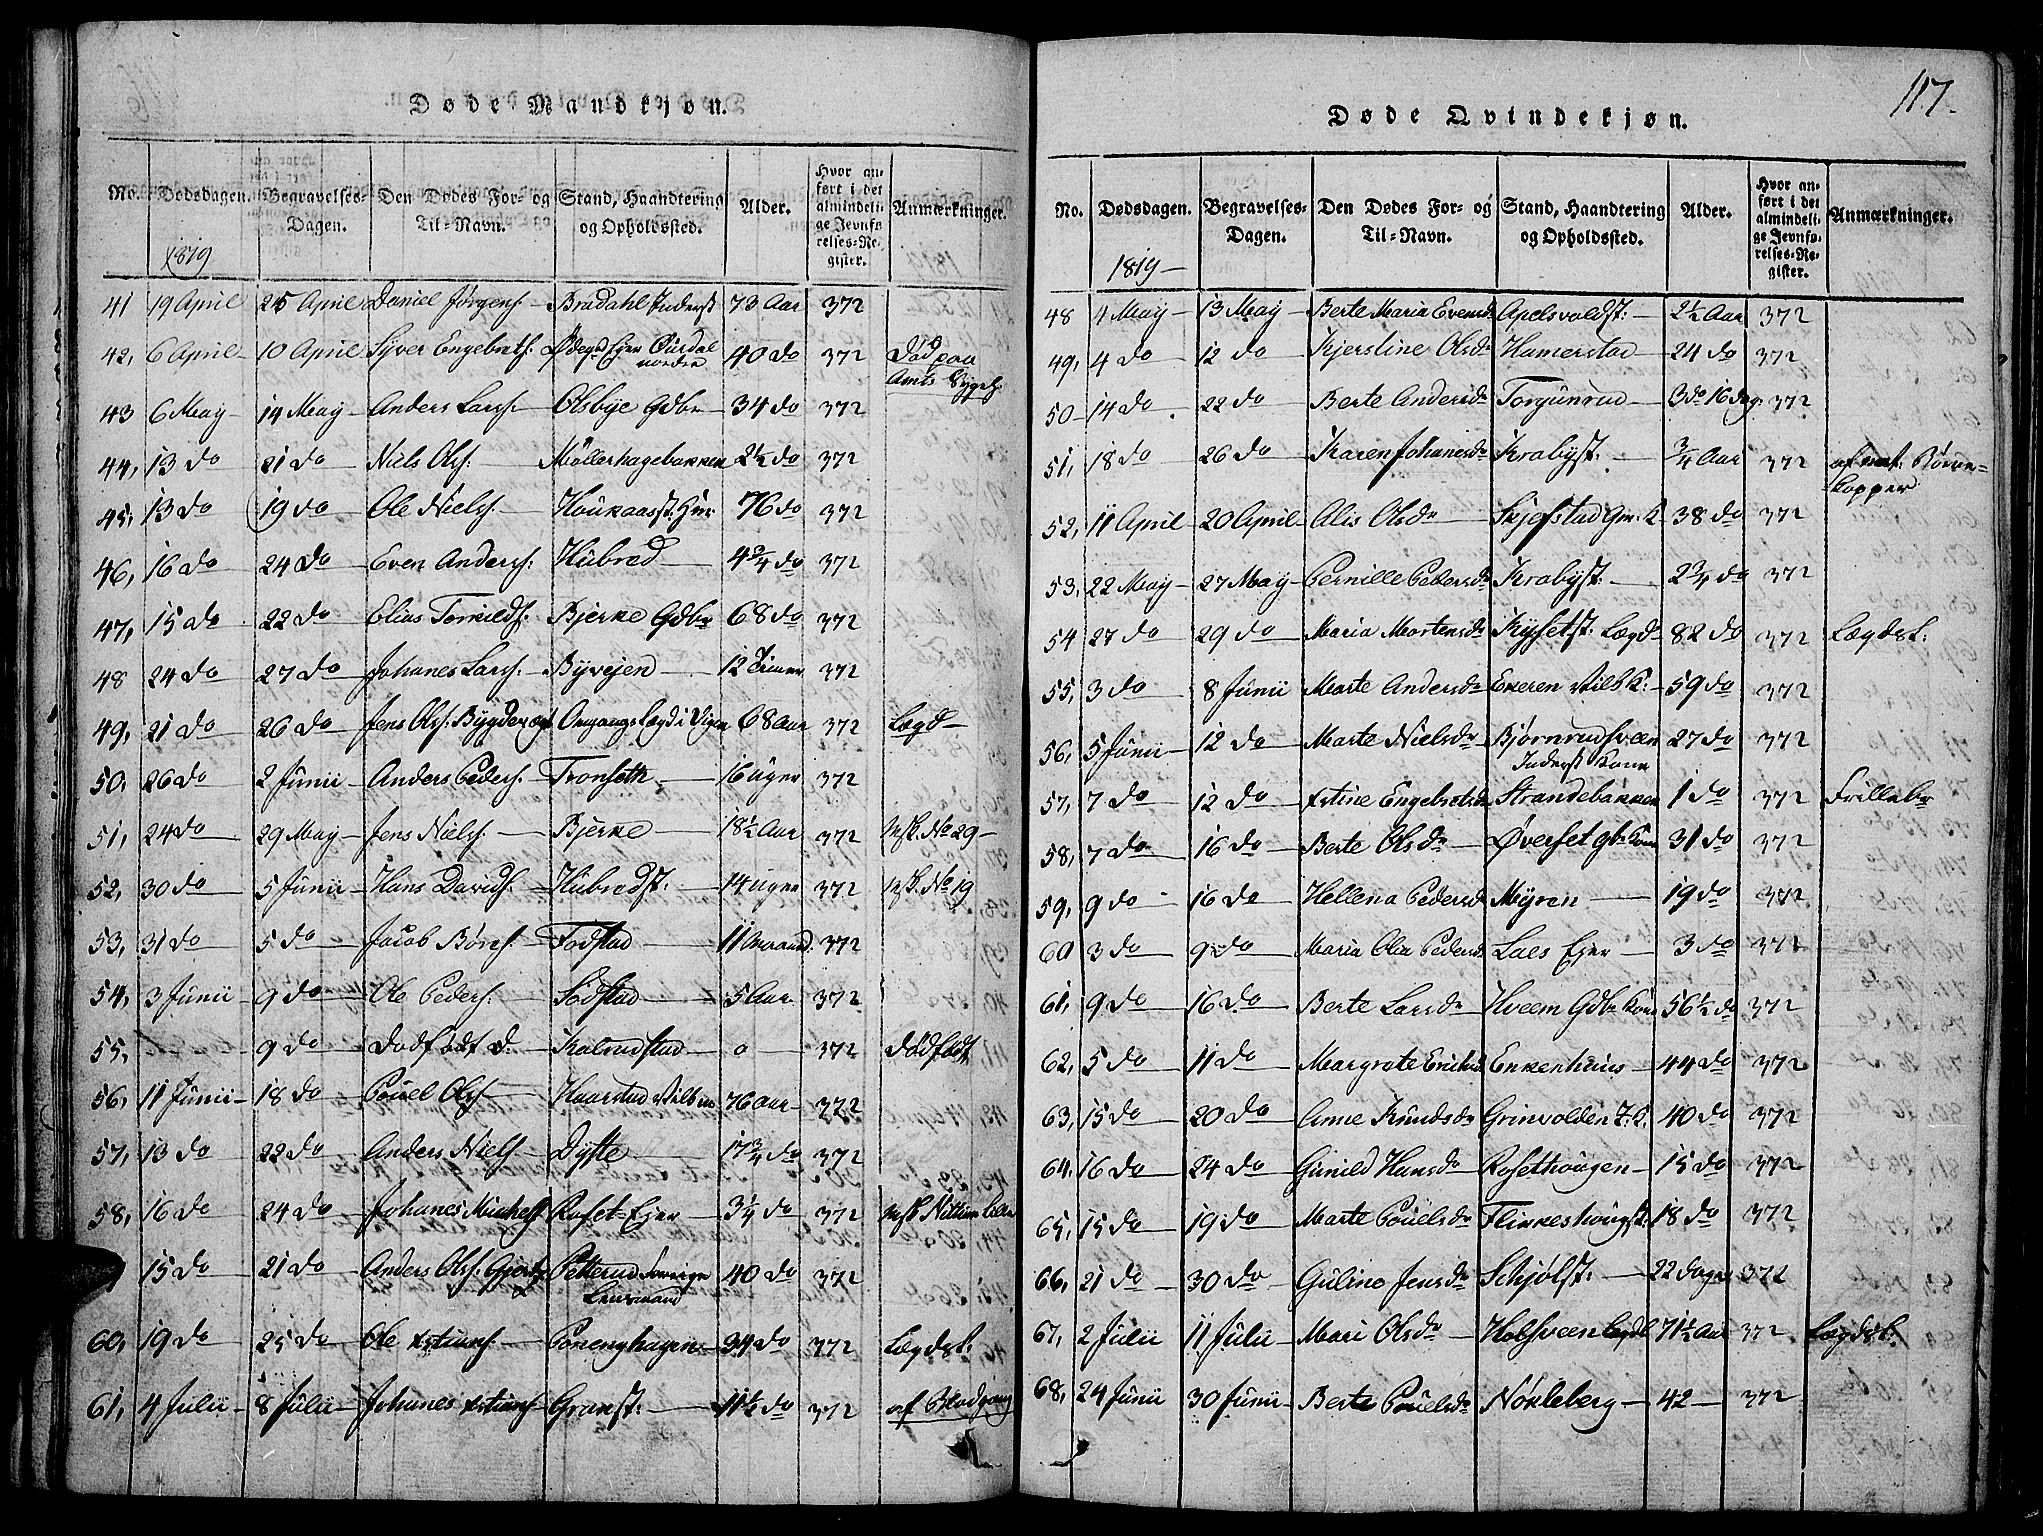 117.
Døde Mandkjøn.
No. Dødsdagen. Begravelses-Dagen. Den Dødes For- og Til-Navn. Stand, Haandtering og Opholdssted. Alder. Hvor anført i det almindelige Jevnførelses-Register. Anmærkninger.
1819
41 19 April 25 April Daniel Jørgens: Bradahl Inderst 73 Aar 372
42, 6 April 10 April Syver Engebrets: Ødegd Ejer Ourdal nordre 40 do 372 Død paa Amts Sygeh:
43 6 May 14 May Anders Lars: Olsbye Gdbr 34 do 372
44, 13 do 21 do Niels Ols: Møllerhagebakken 2½ do 372
45, 13 do 19 do Ole Niels: Houkaasst: 76 do 372
46, 16 do 24 do Even Anders: Hubred 4¾ do 372
47, 15 do 22 do Elias Torkilds: Bjerke Gdbr 68 do 372
48 24 do 27 do Johanes Lars: Byvejen 12 Timer 372
49, 21 do 26 do Jens Ols: Omgangslægd i Vigen 68 Aar 372 Lægd
50, 26 do 2 Junii Anders Peders: Tronseth 16 uger 372
51, 24 do 29 May Jens Niels: Bjerke 18½ Aar 372 No 29
52, 30 do 5 Junii Hans Davids: Hubredst: 14 uger 372 No 19
53, 31 do 5 do Jacob Børes: Fodstad 11 Maaned 372
54, 3 Junii 9 do Ole Peders: Sødstad 5 Aar 372
55, 9 do Dødfødt D: Kalrudstad o 372 Dødfødt
56, 11 Junii 18 do Pouel Ols: Haarstad Vilbm 76 Aar 372
57, 13 do 22 do Anders Niels: Dyste 17¾ do 372
58, 16 do 24 do Johanes Michels: Roset Ejer 3¼ do 372
15 do 21 do Anders Ols: Gjertz Petterud forrige Lensmand 40 do 372
60, 19 do 25 do Ole Xstians: Conenghagen 34 do 372 Lægdsl:
61, 4 Julii 8 Julii Johanes Xstians: Granst: 11½ do 372 af Blodgang
Døde Qvindekjøn.
No. Dødsdagen. Begravelses-Dagen. Den Dødes For- og Til-Navn. Stand, Haandtering og Opholdssted. Alder. Hvor anført i det almindelige Jevnførelses-Register. Anmærkninger.
1819
48 4 May 13 May Berte Maria Evensdr Apelsvoldst: 2½ Aar 372
49, 4 do 12 do Kjerstine Olsdr Hamerstad 24 do 372
50 14 do 22 do Berte Andersdr Torgunrud 3 do 16 dag: 372
51, 18 do 26 do Karen Johanesdr Krabyst: ¾ Aar 372 af nat: Børnekopper
52, 11 April 20 April Alis Olsdr Skjefstad Gm: K 38 do 372
53, 22 May 27 May Pernille Pedersdr Krabyst: 2¾ do 372
54 27 do 29 do Maria Mortensdr Kysetst: Lægd 82 do 372 Lægdsl:
55, 3 do 8 Junii Marte Andersdr Ekeren Vilb K: 59 do 372
56, 5 Junii 12 do Marte Nielsdr Bjørnrudsveen Inderst Kone 27 do 372
57, 7 do 12 do Xstine Engebretsdr Strandebakken 1 do 372 Frillebr
58, 7 do 16 do Berte Olsdr Øverset gbr Kone 31 do 372
59, 9 do 16 do Hellena Pedersdr Myren 19 do 372
60 3 do 9 do Maria Olia Pedersdr Laes Ejer 3 do 372
61, 9 do 16 do Berte Larsdr Hveem Gdbr Kone 56½ do 372
62, 5 do 11 do Margrete Eriksdr Enkenhuus 44 do 372
63, 15 do 20 do Anne Knudsdr Grinvolden I: K: 40 do 372
64, 16 do 24 do Gunild Hansdr Rosethougen 15 do 372
65, 15 do 19 do Marte Pouelsdr Flinkeshougst: 18 do 372
66, 21 do 30 do Guline Jensdr Schjølst: 22 dage 372
67, 2 Julii 11 Julii Mari Olsdr Holsveen Lægdl 71½ Aar 372 Lægdsl:
68, 24 Junii 30 Junii Berte Pouelsdr Nøkleberg 42 372